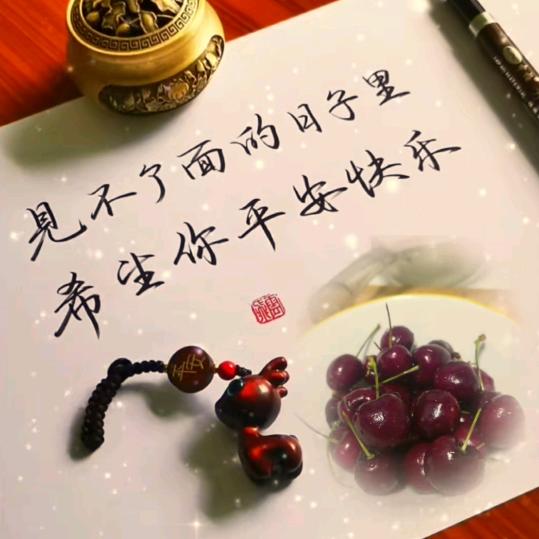 見不了面的日子里
希望你平安快乐